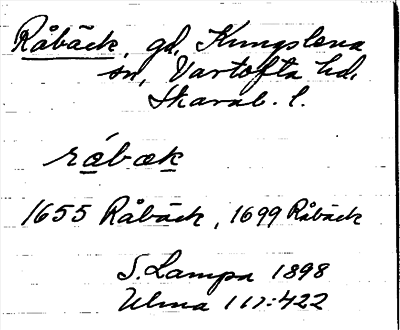 Råbäck, gd, Kungslena
sn, Vartofta hd,
Skarab. l.
råbæk
1655 Råbäck, 1699 Råbäck
S. Lampa 1898
Ulma 117:422